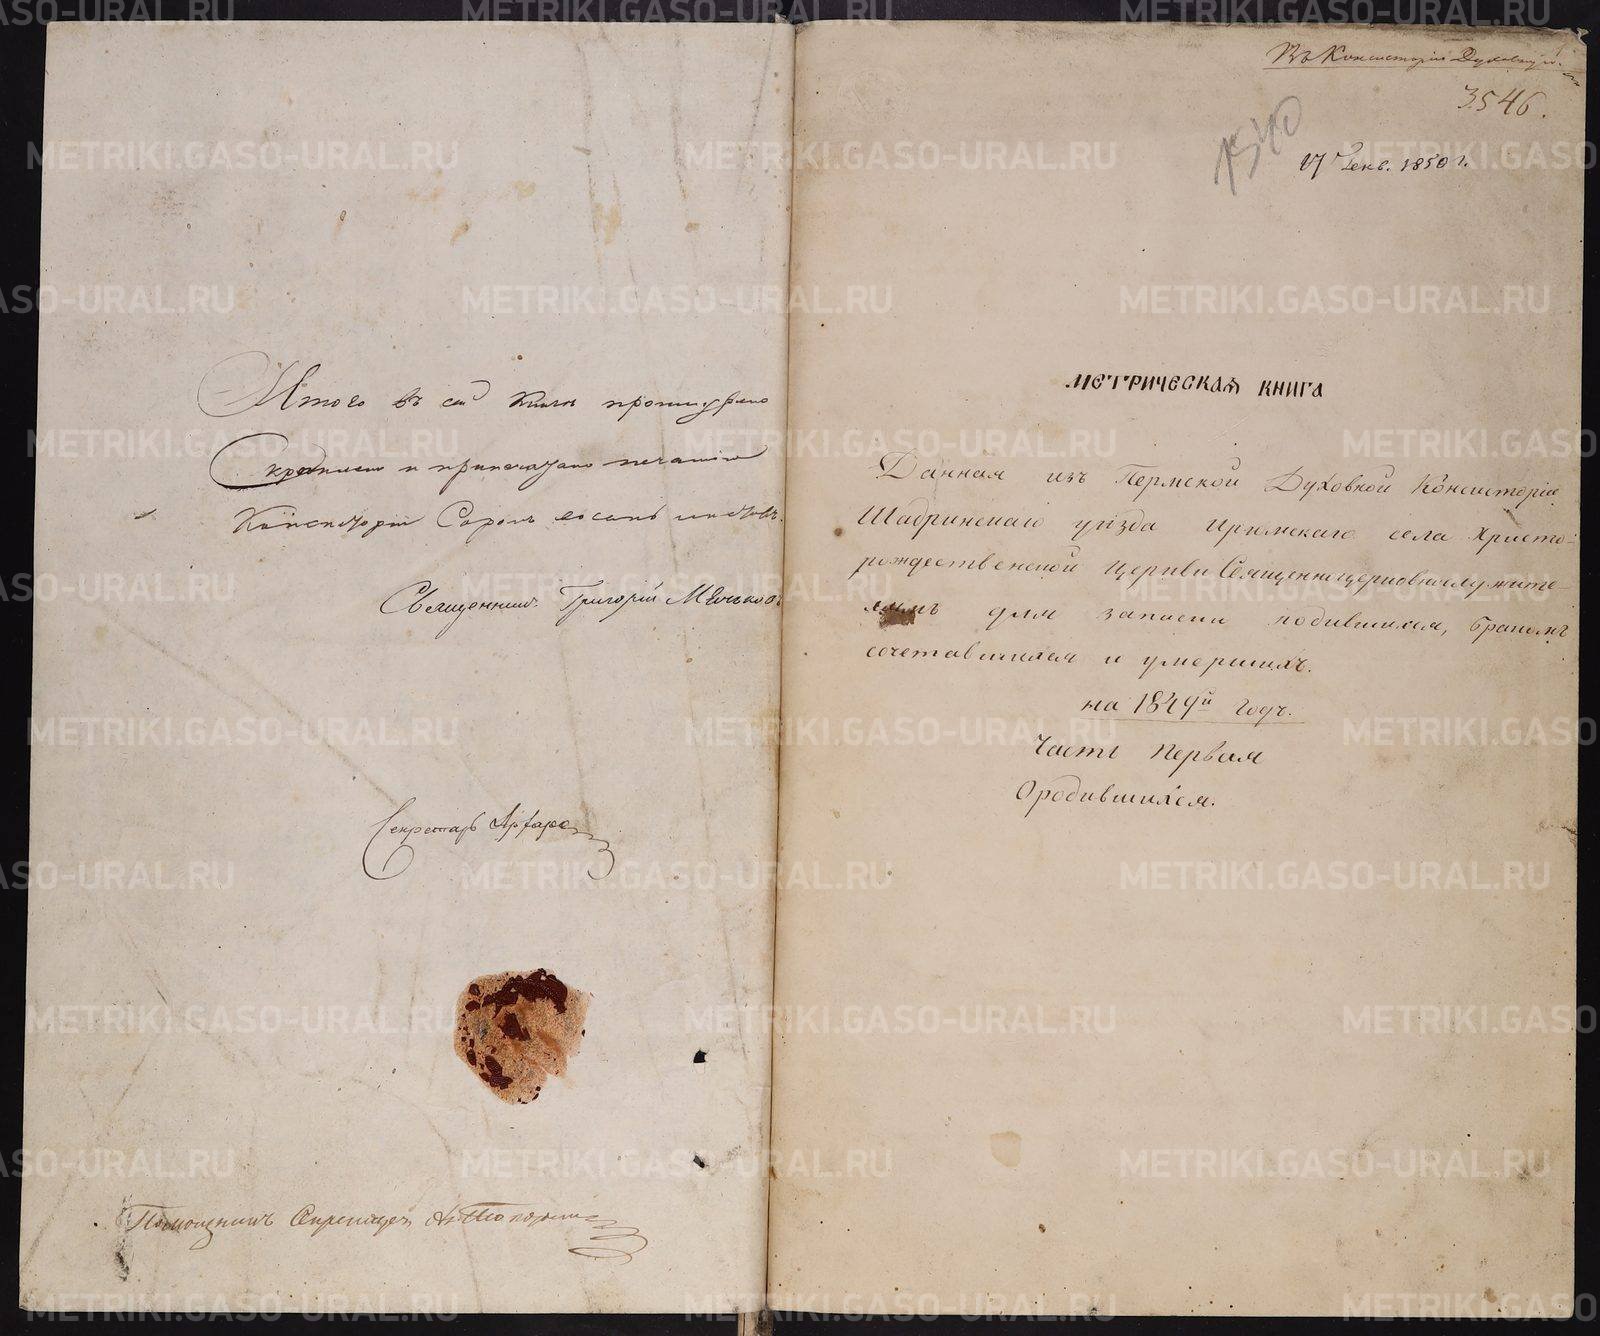 Итого въ сей книге прошнуровано
Скрѣплено и припечатано печатью
Консисторіи Сорокъ восемь листовъ.
Священникъ Григорій
Секретарь
Помощникъ Секретаря
Въ Консисторію Духовную.
3546.
1540
17 Генв. 1850 г.
МЕТРИЧЕСКАЯ КНИГА
Данная изъ Пермской Духовной Консисторіи
Шадринскаго уѣзда Ирюмскаго села Христо-
рождественской Церкви Священноцерковнослужите-
лямъ для записи родившихся, бракомъ
сочетавшихся и умершихъ.
на 1849й годъ.
Часть Первая
О родившихся.
METRIKI.GASO-URAL.RU